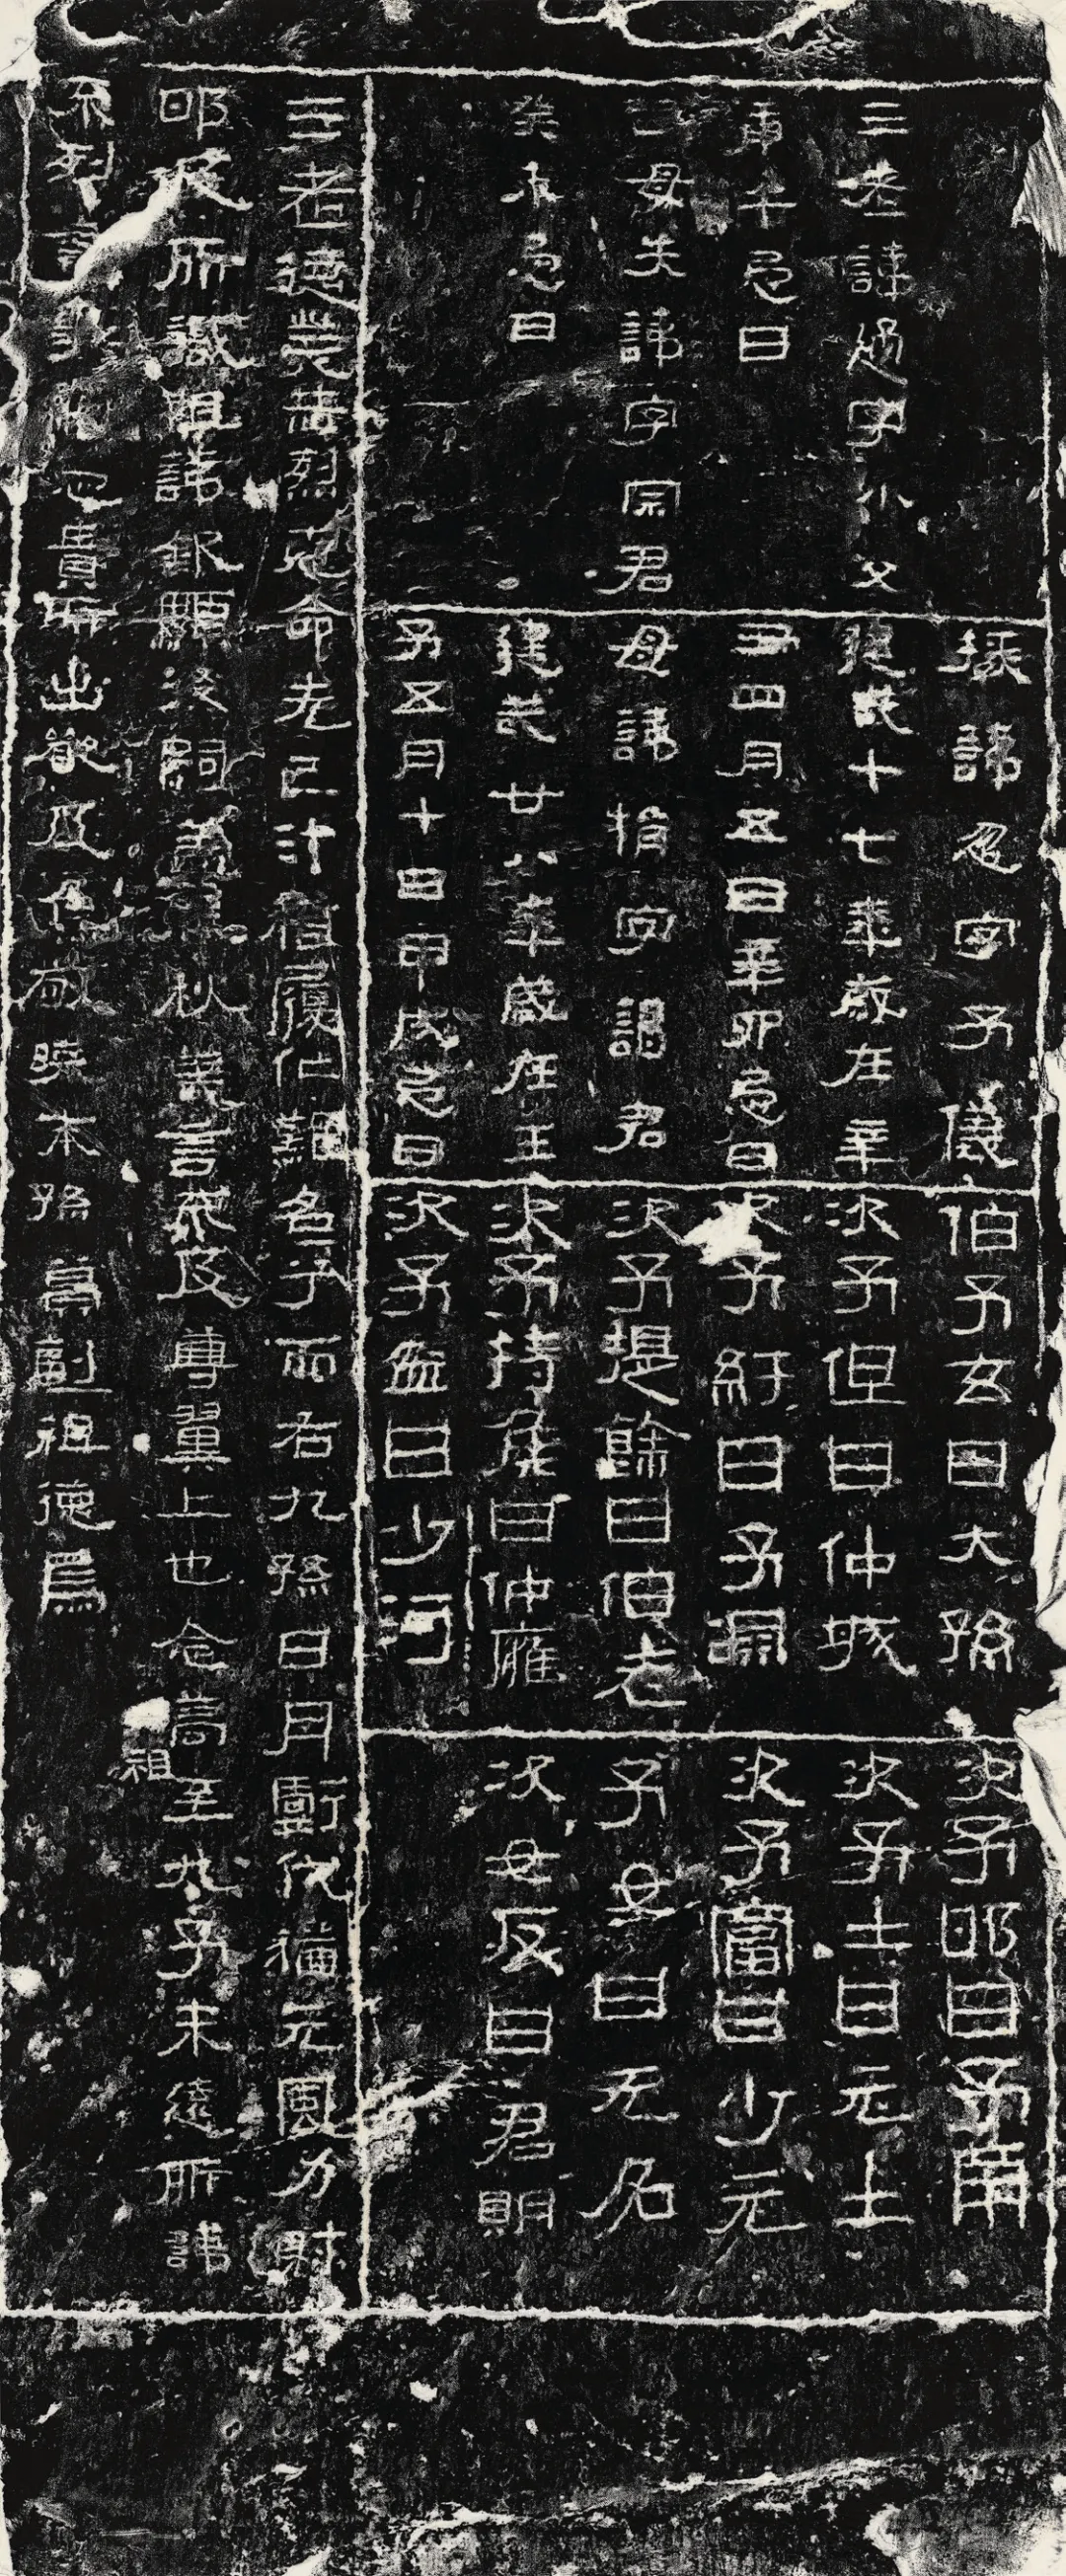 三老諱通字小父
庚午忌日
祖母失諱字宗君
癸未忌日
掾諱忽字子儀
建武十七年歲在辛
丑四月五日辛卯忌日
母諱捐字謁君
建武廿八年歲在壬
子五月十日甲戌忌日
伯子玄曰大孫
次子但曰仲城
次子紆曰子淵
次子提餘曰伯老
次子持侯曰仲廱
次子盆曰少河
次子邯曰子南
次子士曰元士
次子富曰少元
子女曰无名
次女反曰君明
三老德業赫烈克命先己汁稽履仁難名兮而右九孫日月虧代猶元風力射
邯及所識祖諱欽顯後嗣蓋春秋義言不及尊翼上也念高祖至九子未遠所諱
不列言事觸忌貴所出嚴及焦敬曉末孫冀副祖德焉